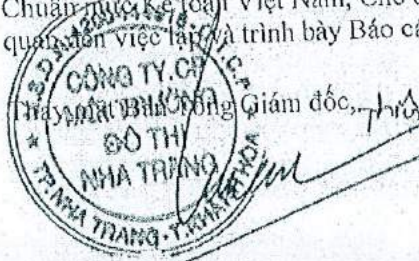 Chuẩn mực Kế toán Việt Nam, Chế
quan đến việc lập và trình bày Báo cá
Thay mặt Ban Tổng Giám đốc,
CÔNG TY.CP
MÔI TRƯỜNG
ĐÔ THỊ
NHA TRANG
TP.NHA TRANG-T.KHÁNH HÒA